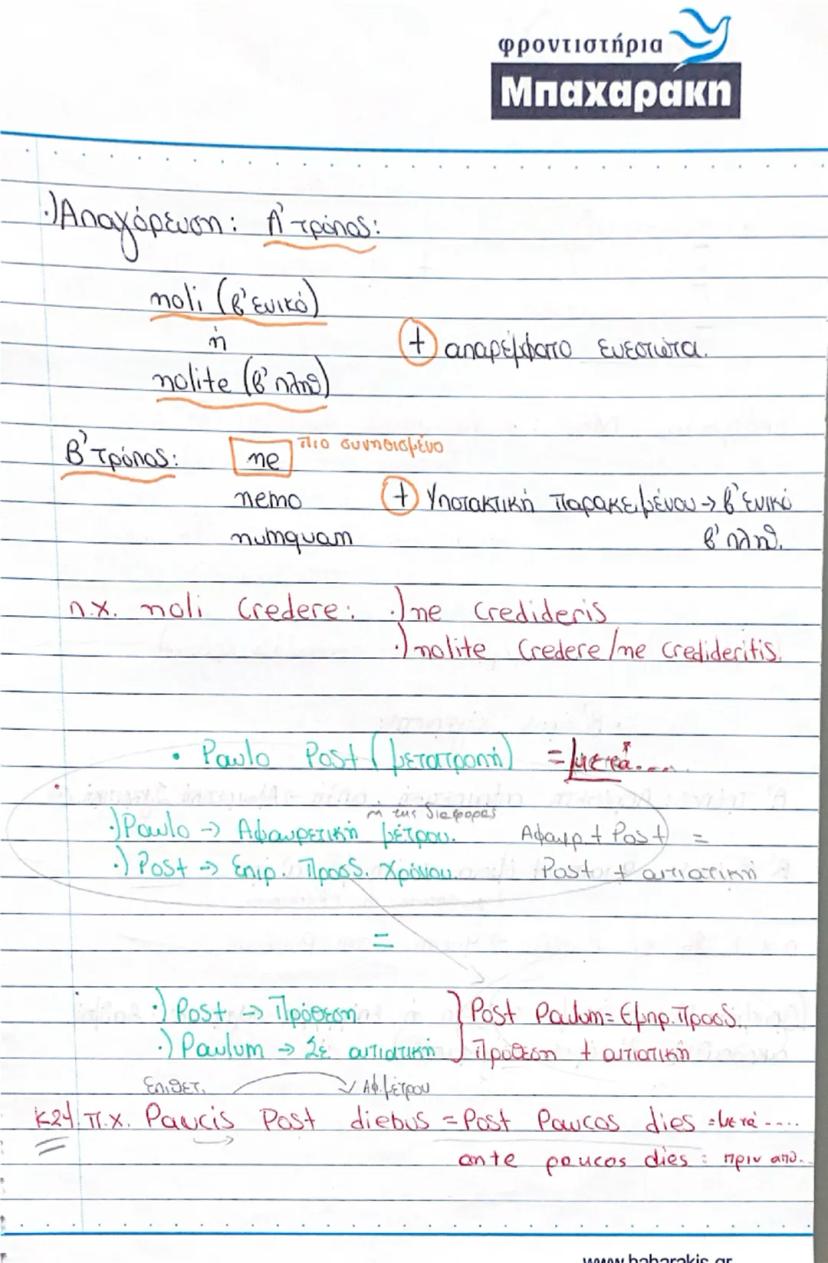 φροντιστήρια
Μπαχαράκη
·) Απαγόρευση: Α' τρόπος:
noli (β' ενικό)
ή
+ απαρέμφατο ενεστώτα.
nolite (β' πληθ)
Β' τρόπος: ne πιο συνηθισμένο
nemo + Υποτακτική παρακειμένου → β' ενικό
numquam β' πληθ.
π.χ. noli credere: ·) ne credideris
·) nolite credere/ne credideritis.
• Paulo Post (μετατροπή) = μετά....
ή της διαφοράς
·) Paulo → Αφαιρετική μέτρου. Αφαιρ + Post =
·) Post → Επιρ. Προσδ. χρόνου Post + αιτιατική
=
·) Post → Πρόθεση } Post Paulum = Εμπρ. Προσδ.
·) Paulum → Σε αιτιατική Πρόθεση + αιτιατική
Επιθετ. Αφ. μέτρου
Κ24 π.χ. Paucis Post diebus = Post Paucos dies = μετά ....
ante paucos dies: πριν από..
www.baharakis.gr